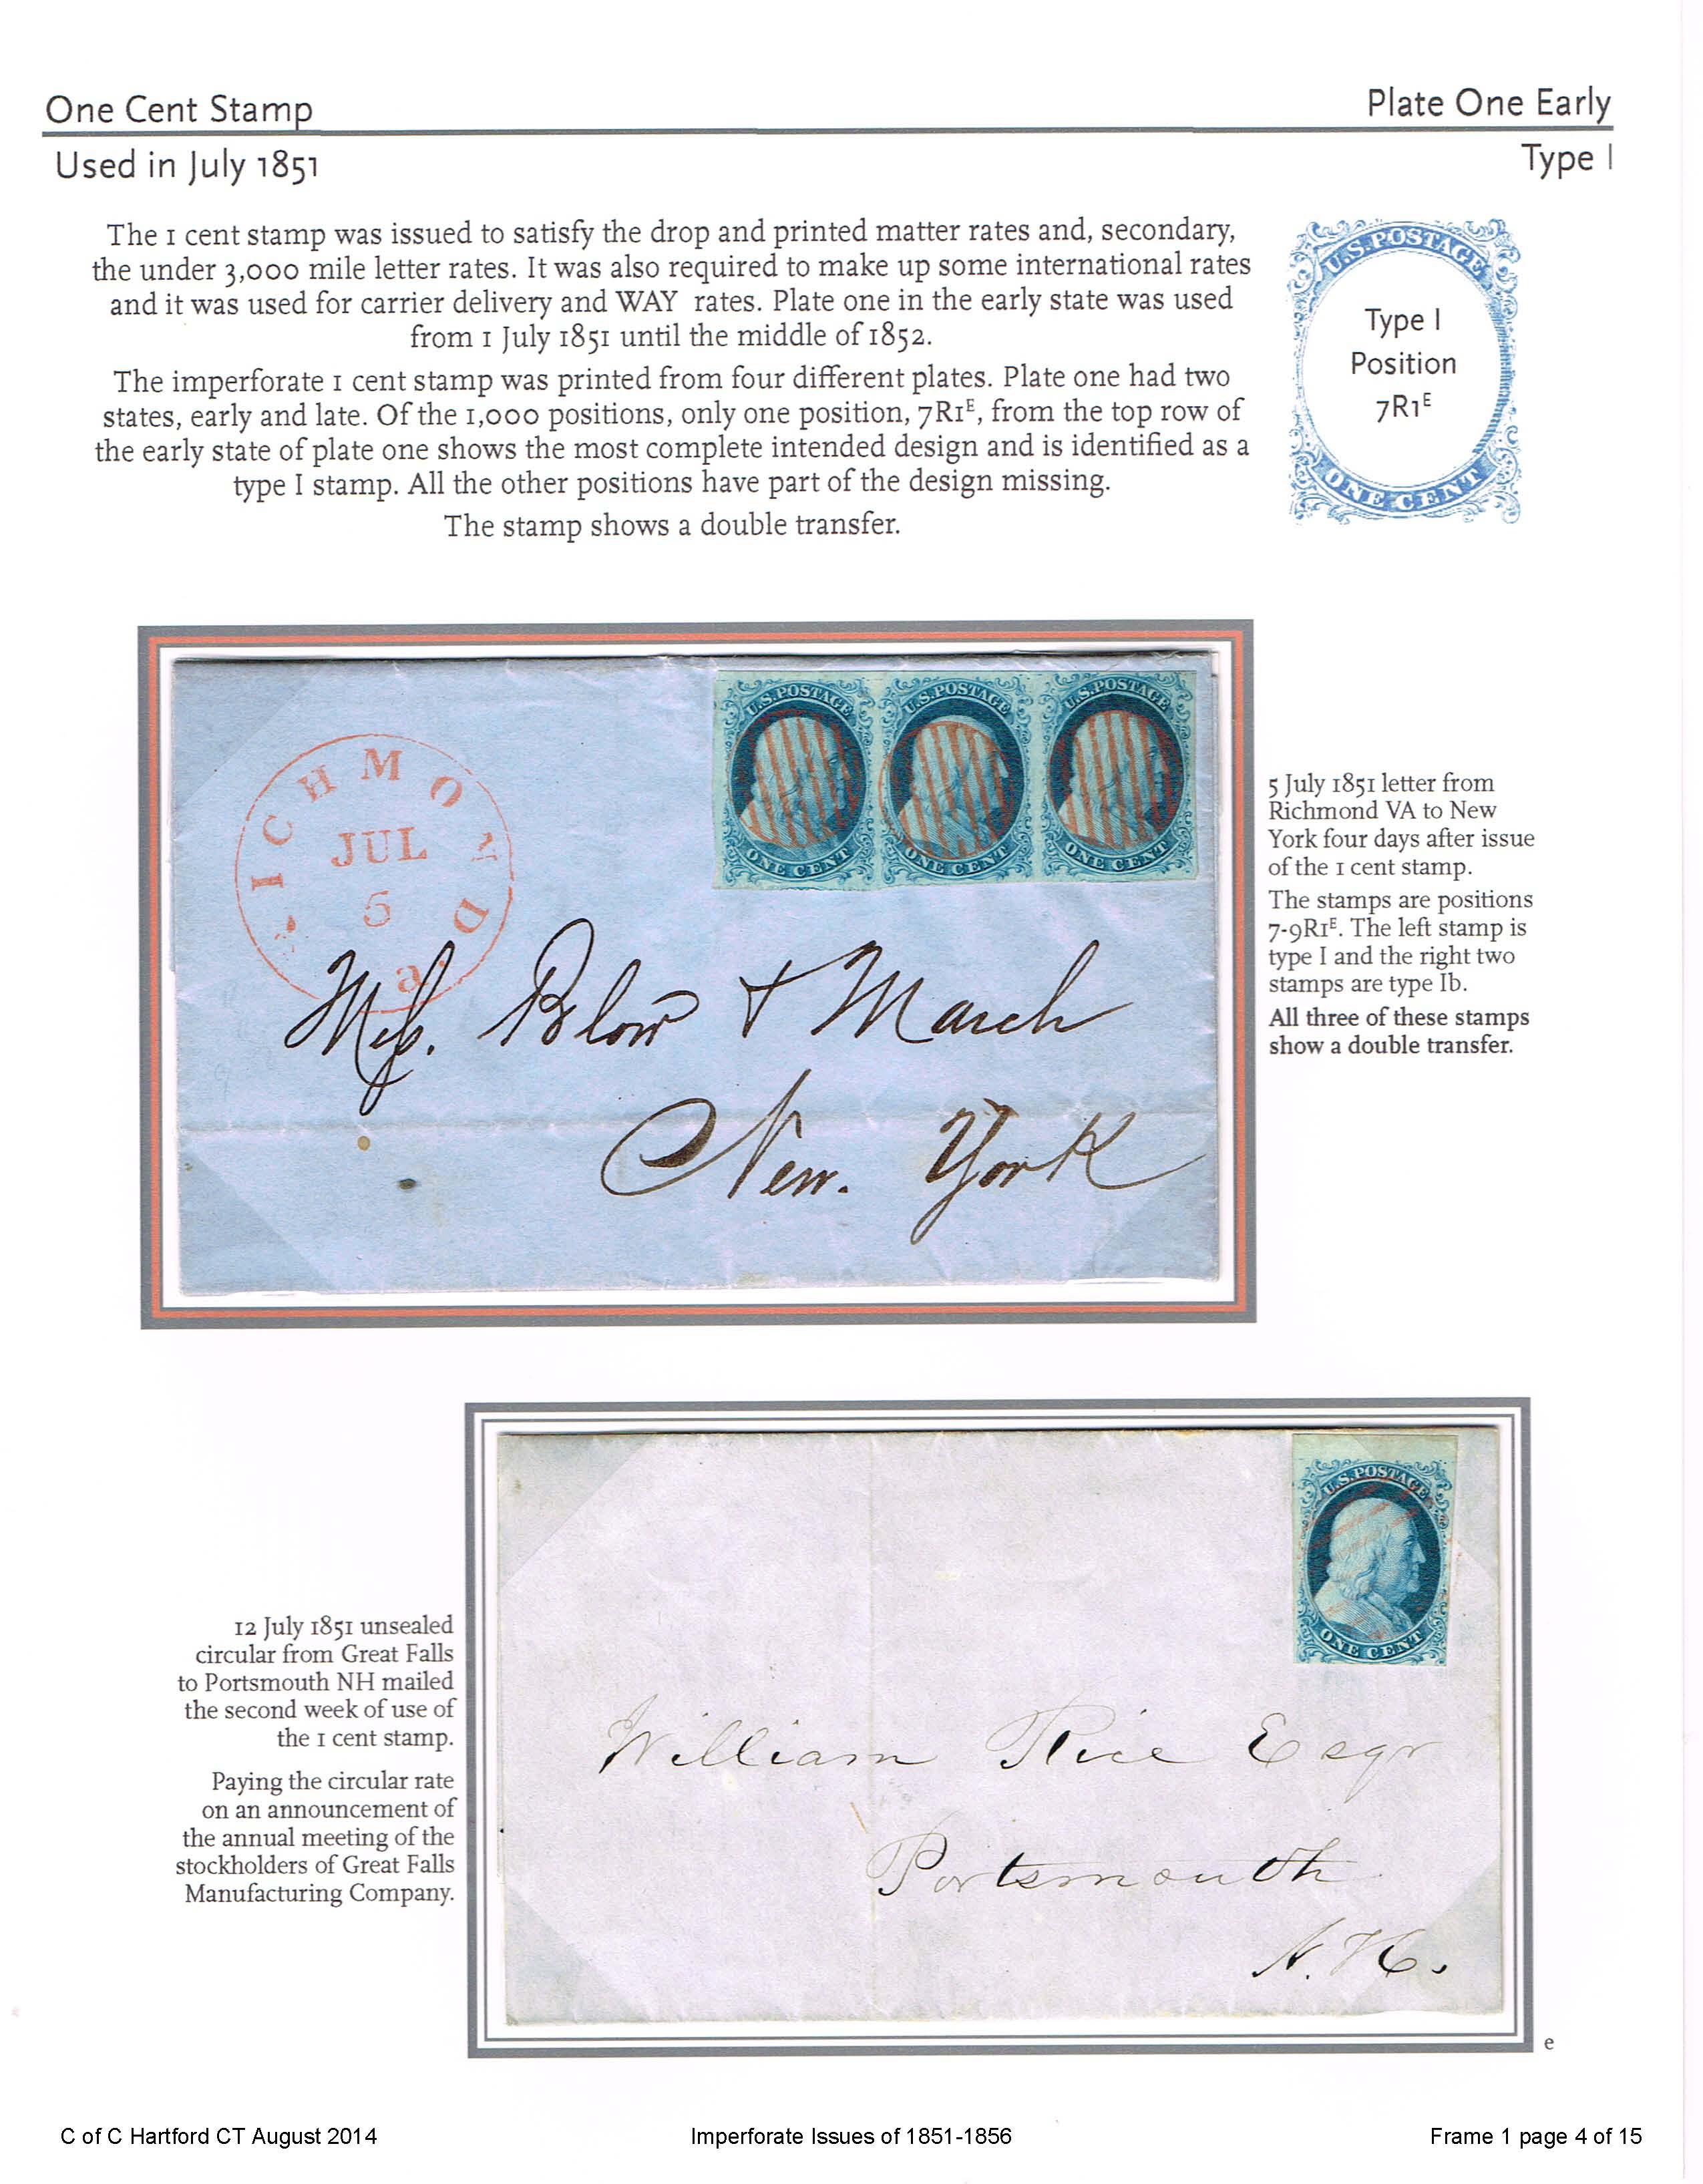 One Cent Stamp
Plate One Early
Used in July 1851
Type I
The 1 cent stamp was issued to satisfy the drop and printed matter rates and, secondary,
the under 3,000 mile letter rates. It was also required to make up some international rates
and it was used for carrier delivery and WAY rates. Plate one in the early state was used
from 1 July 1851 until the middle of 1852.
The imperforate 1 cent stamp was printed from four different plates. Plate one had two
states, early and late. Of the 1,000 positions, only one position, 7R1ᴱ, from the top row of
the early state of plate one shows the most complete intended design and is identified as a
type I stamp. All the other positions have part of the design missing.
The stamp shows a double transfer.
U.S. POSTAGE
Type I
Position
7R1ᴱ
ONE CENT
U.S. POSTAGE U.S. POSTAGE U.S. POSTAGE
ONE CENT ONE CENT ONE CENT
ICHMOND
JUL
5
a.
Mess. Blow + March
New. York
5 July 1851 letter from
Richmond VA to New
York four days after issue
of the 1 cent stamp.
The stamps are positions
7-9R1ᴱ. The left stamp is
type I and the right two
stamps are type Ib.
All three of these stamps
show a double transfer.
U.S. POSTAGE
ONE CENT
William Rice Esqr
Portsmouth
N.H.
12 July 1851 unsealed
circular from Great Falls
to Portsmouth NH mailed
the second week of use of
the 1 cent stamp.
Paying the circular rate
on an announcement of
the annual meeting of the
stockholders of Great Falls
Manufacturing Company.
e
C of C Hartford CT August 2014
Imperforate Issues of 1851-1856
Frame 1 page 4 of 15